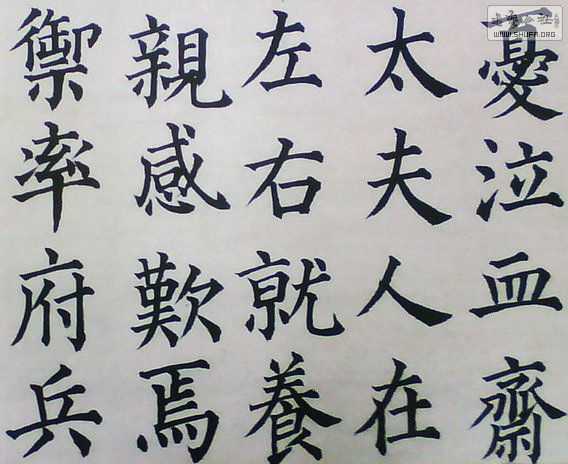 憂泣血齋
太夫人在
左右就養
親感歎焉
禦率府兵
WWW.SHUFA.ORG